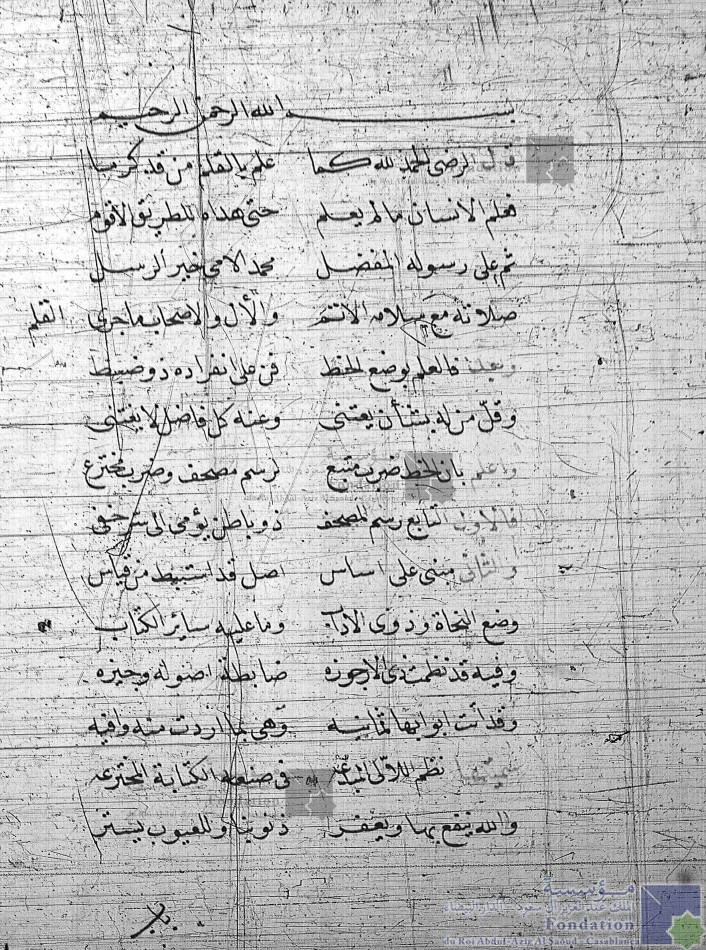 بسم الله الرحمن الرحيم
قال الرضى الحمد لله كما علم بالقلم من قد كرما
فعلم الانسان ما لم يعلم حتى هداه للطريق الاقوم
ثم على رسوله المفضل محمد الامي خير الرسل
صلاته مع سلامه الاتم والأل والاصحاب ما جرى القلم
وبعد فالعلم بوضع الخط فن على انفراده ذو ضبط
وقل من له بشأن يعتنى وعنه كل فاضل لا يغتنى
واعلم بان الخط ضرب متبع لرسم مصحف وضرب مخترع
فالاول التابع رسم المصحف ذو باطن يؤمى الى سر خفى
والثانى مبنى على اساس اصل قد استنبط من قياس
وضع النحاة وذوى الاداب وما عليه ساير الكتاب
وفيه قد نظمت ذى الارجوزه ضابطة اصوله وجيزه
وقد اتت ابوابها ثمانيه وهى بما اردت منه وافيه
سميتها نظم اللآلى المبدعه فى صنعة الكتابة المخترعه
والله ينفع بها ويغفر ذنوبنا وللعيوب يستر
مؤسسة
الملك عبد العزيز آل سعود - الدار البيضاء
Fondation
du Roi Abdul-Aziz Al Saoud - Casablanca